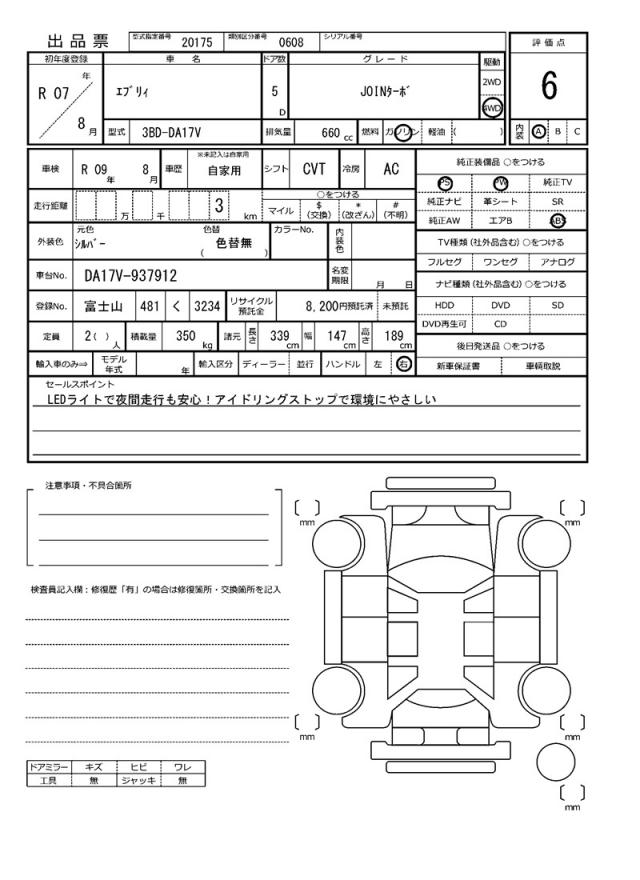 出品票 型式指定番号 20175 類別区分番号 0608 シリアル番号
評価点
6
内装 A B C
初年度登録 車名 ドア数 グレード 駆動
R 07 年 8 月 エブリィ 5 D JOINターボ 2WD 4WD
型式 3BD-DA17V 排気量 660 cc 燃料 ガソリン 軽油 ( )
車検 R 09 年 8 月 車歴 ※未記入は自家用 自家用 シフト CVT 冷房 AC
走行距離 万 千 3 km ○をつける
マイル $(交換) *(改ざん) #(不明)
外装色 元色 シルバー 色替 ( 色替無 ) カラーNo. 内装色
車台No. DA17V-937912 名変期限 月 日
登録No. 富士山 481 く 3234 リサイクル預託金 8,200円預託済 未預託
定員 2( )人 積載量 350 kg 諸元 長さ 339 cm 幅 147 cm 高さ 189 cm
輸入車のみ⇒ モデル年式 年 輸入区分 ディーラー 並行 ハンドル 左 右
純正装備品 ○をつける
PS PW 純正TV
純正ナビ 革シート SR
純正AW エアB ABS
TV種類 (社外品含む) ○をつける
フルセグ ワンセグ アナログ
ナビ種類 (社外品含む) ○をつける
HDD DVD SD
DVD再生可 CD
後日発送品 ○をつける
新車保証書 車輌取説
セールスポイント
LEDライトで夜間走行も安心！アイドリングストップで環境にやさしい
注意事項・不具合箇所
検査員記入欄：修復歴「有」の場合は修復箇所・交換箇所を記入
ドアミラー キズ ヒビ ワレ
工具 無 ジャッキ 無
[ ] mm [ ] mm
[ ] mm [ ] mm
[ ] mm